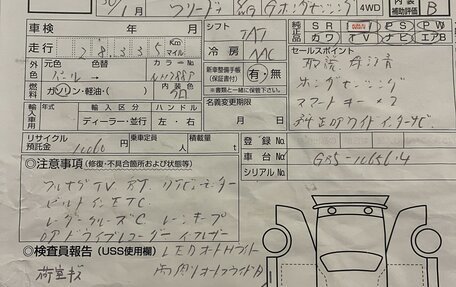 30/1月 フリード 5D Gホンダセンシング 4WD 内装補助評価 B
車検 年 月 シフト 7AT 純正品 SR PS PW
走行 28,335 Km マイル 冷房 AAC カワ TV ナビ エアB
外装色 元色 パール 色替 カラーNo NH788P 新車整備手帳(保証書付) 有・無 ※書類と一緒に保管下さい
セールスポイント
取説 保証書
燃料 ガソリン・軽油・( ) 内装色
ホンダセンシング
輸入車 年式 輸入区分 ディーラー・並行 ハンドル 左・右 名義変更期限 月 日
スマートキー×2
純正OPワイドインターナビ
リサイクル預託金 乗車定員 人 積載量 t 登録No.
車台No. GB5-
シリアルNo.
◎注意事項(修復・不具合箇所および状態等)
フルセグTV
ビルトインETC
レーダークルーズC レーンキープ
ドライブレコーダー
◎検査員報告(USS使用欄) LEDオートライト
荷室キズ 両側オートスライドドア